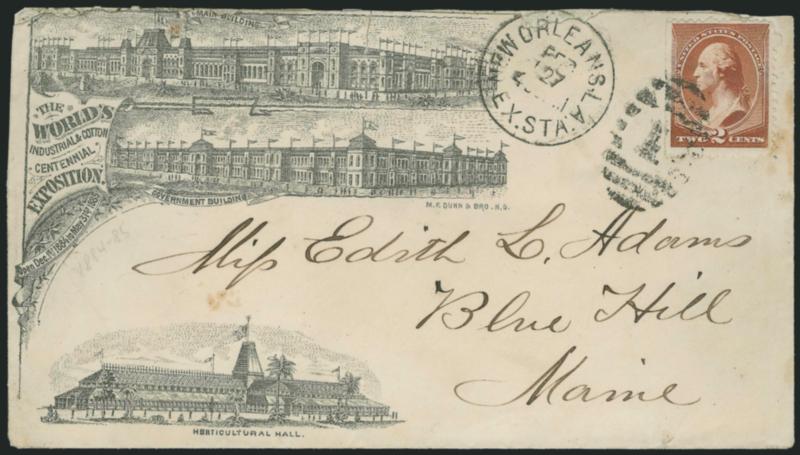 MAIN BUILDING
THE
WORLD'S
INDUSTRIAL & COTTON
CENTENNIAL
EXPOSITION.
Open Dec. 1st 1884 to May 31st 1885
GOVERNMENT BUILDING
M. F. DUNN & BRO. N.O.
1884-85
NEW ORLEANS, LA.
27
EX. STA.
UNITED STATES POSTAGE
TWO 2 CENTS
1
Miss Edith L. Adams
Blue Hill
Maine
HORTICULTURAL HALL.